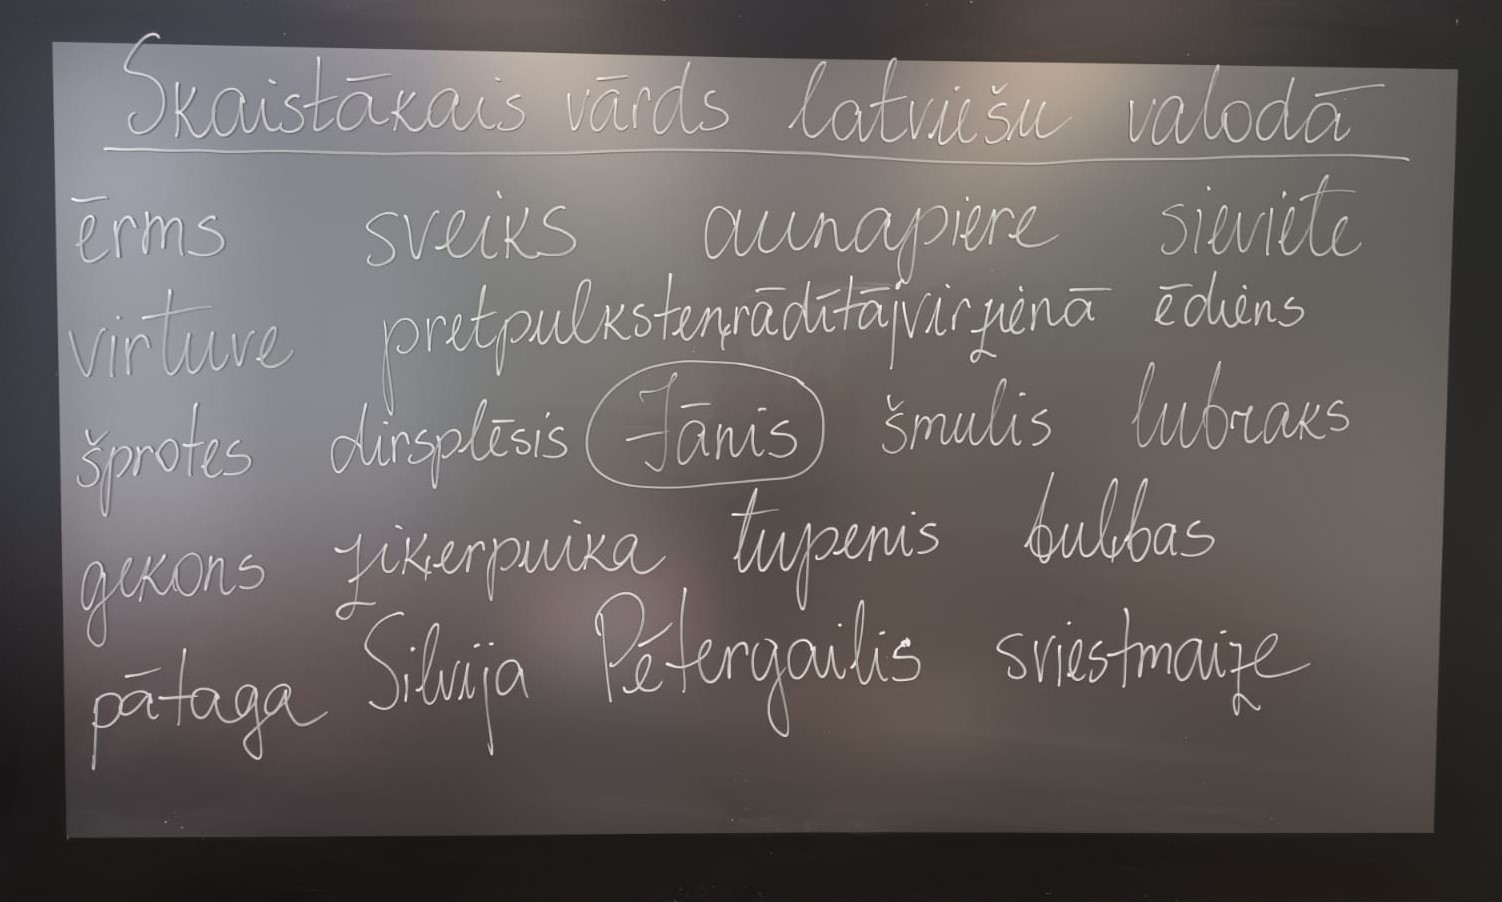 Skaistākais vārds latviešu valodā
ērms sveiks aunapiere sieviete
virtuve pretpulksteņrādītājvirzienā ēdiens
šprotes dirsplēsis Jānis šmulis lubraks
gekons ziķerpuika tupenis buļbas
pātaga Silvija Pētergailis sviestmaize